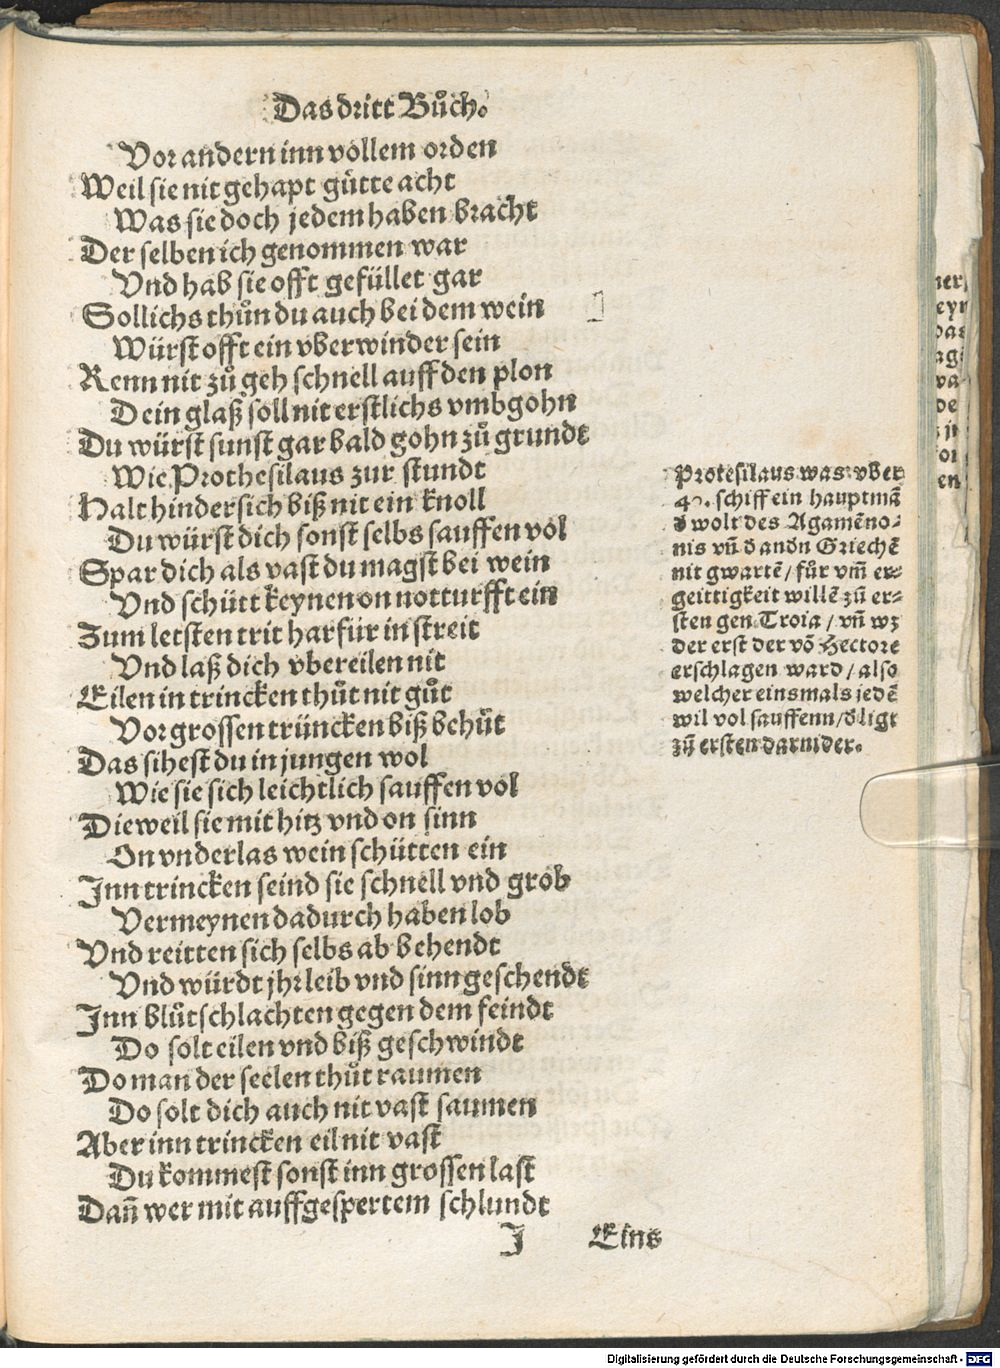 Das dritt Bůch.
Vor andern inn vollem orden
Weil sie nit gehapt gůtte acht
Was sie doch jedem haben bracht
Der selben ich genommen war
Vnd hab sie offt gefüllet gar
Sollichs thůn du auch bei dem wein
Würst offt ein vberwinder sein
Renn nit zů geh schnell auff den plon
Dein glaß soll nit erstlichs vmbgohn
Du würst sunst gar bald gohn zů grundt
Wie Prothesilaus zur stundt
Halt hindersich biß nit ein knoll
Du würst dich sonst selbs sauffen vol
Spar dich als vast du magst bei wein
Vnd schütt keynen on notturfft ein
Zum letsten trit harfür in streit
Vnd laß dich vbereilen nit
Eilen in trincken thůt nit gůt
Vor grossen trüncken biß behůt
Das sihest du in jungen wol
Wie sie sich leichtlich sauffen vol
Dieweil sie mit hitz vnd on sinn
On vnderlas wein schütten ein
Inn trincken seind sie schnell vnd grob
Vermeynen dadurch haben lob
Vnd reitten sich selbs ab behendt
Vnd würdt jhr leib vnd sinn geschendt
Inn blůtschlachten gegen dem feindt
Do solt eilen vnd biß geschwindt
Do man der seelen thůt raumen
Do solt dich auch nit vast saumen
Aber inn trincken eil nit vast
Du kommest sonst inn grossen last
Dañ wer mit auffgespertem schlundt
J Eins
Protesilaus was vber
40. schiff ein hauptmã
d wolt des Agamẽno⸗
nis vñ d andn Griechẽ
nit gwartẽ / für vm̃ er⸗
geittigkeit willẽ zů er⸗
sten gen Troia / vñ wz
der erst der võ Hectore
erschlagen ward / also
welcher einsmals jedẽ
wil vol sauffenn / d ligt
zů ersten darnider.
ner,
eyn
das
ag
va
de
z
for
en
Digitalisierung gefördert durch die Deutsche Forschungsgemeinschaft - DFG